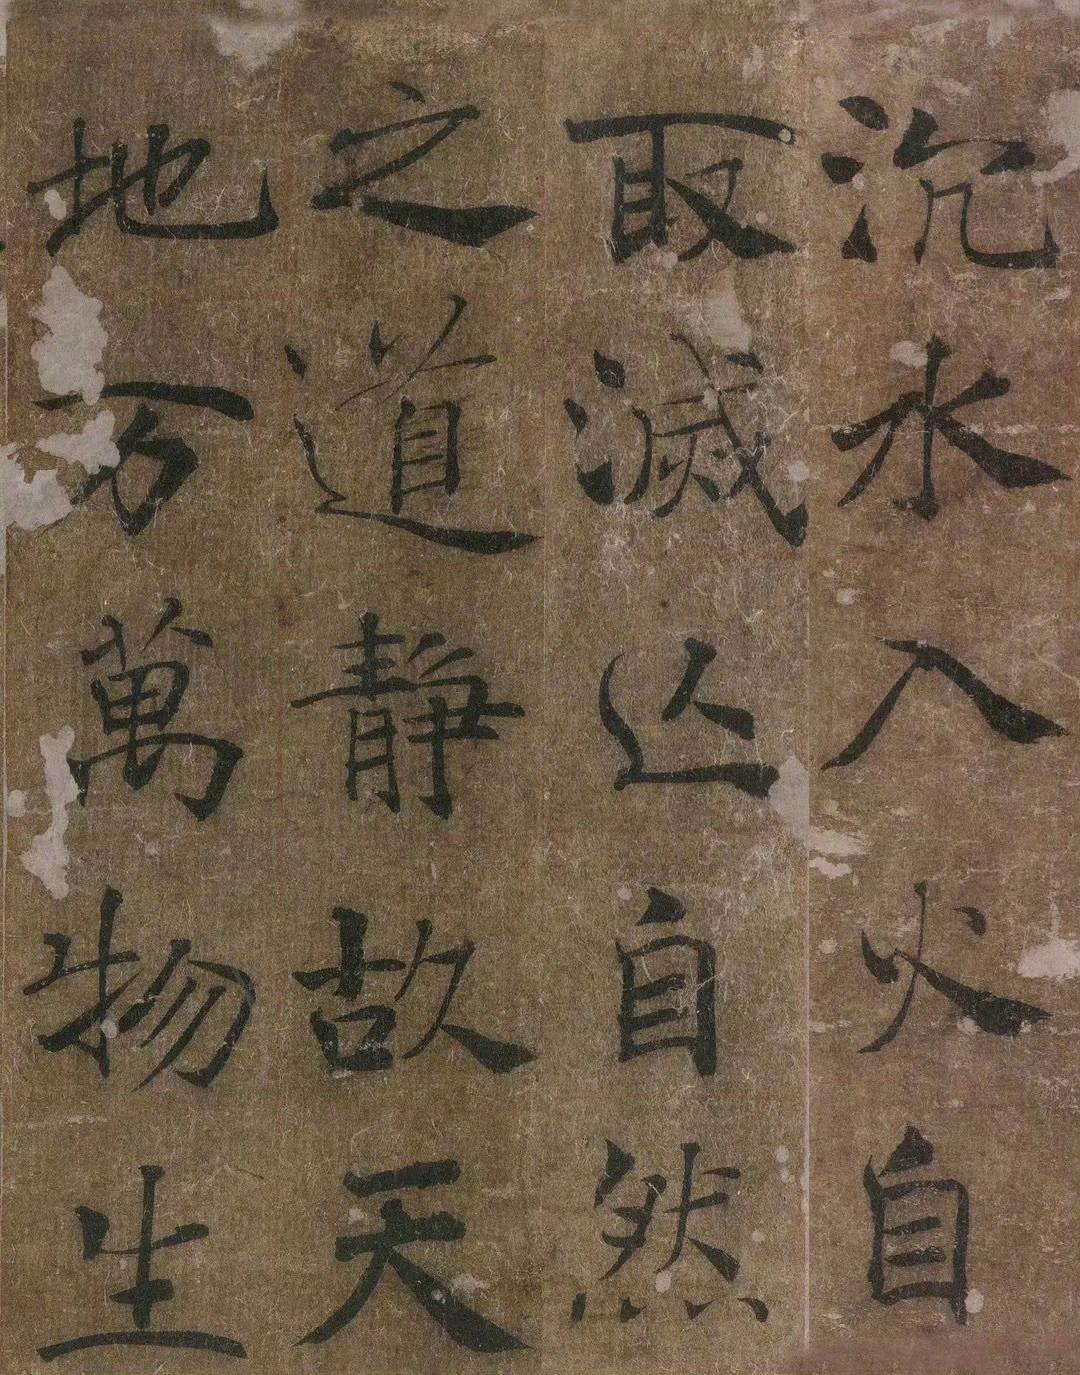 沉水入火自
取滅亡自然
之道靜故天
地万萬物生